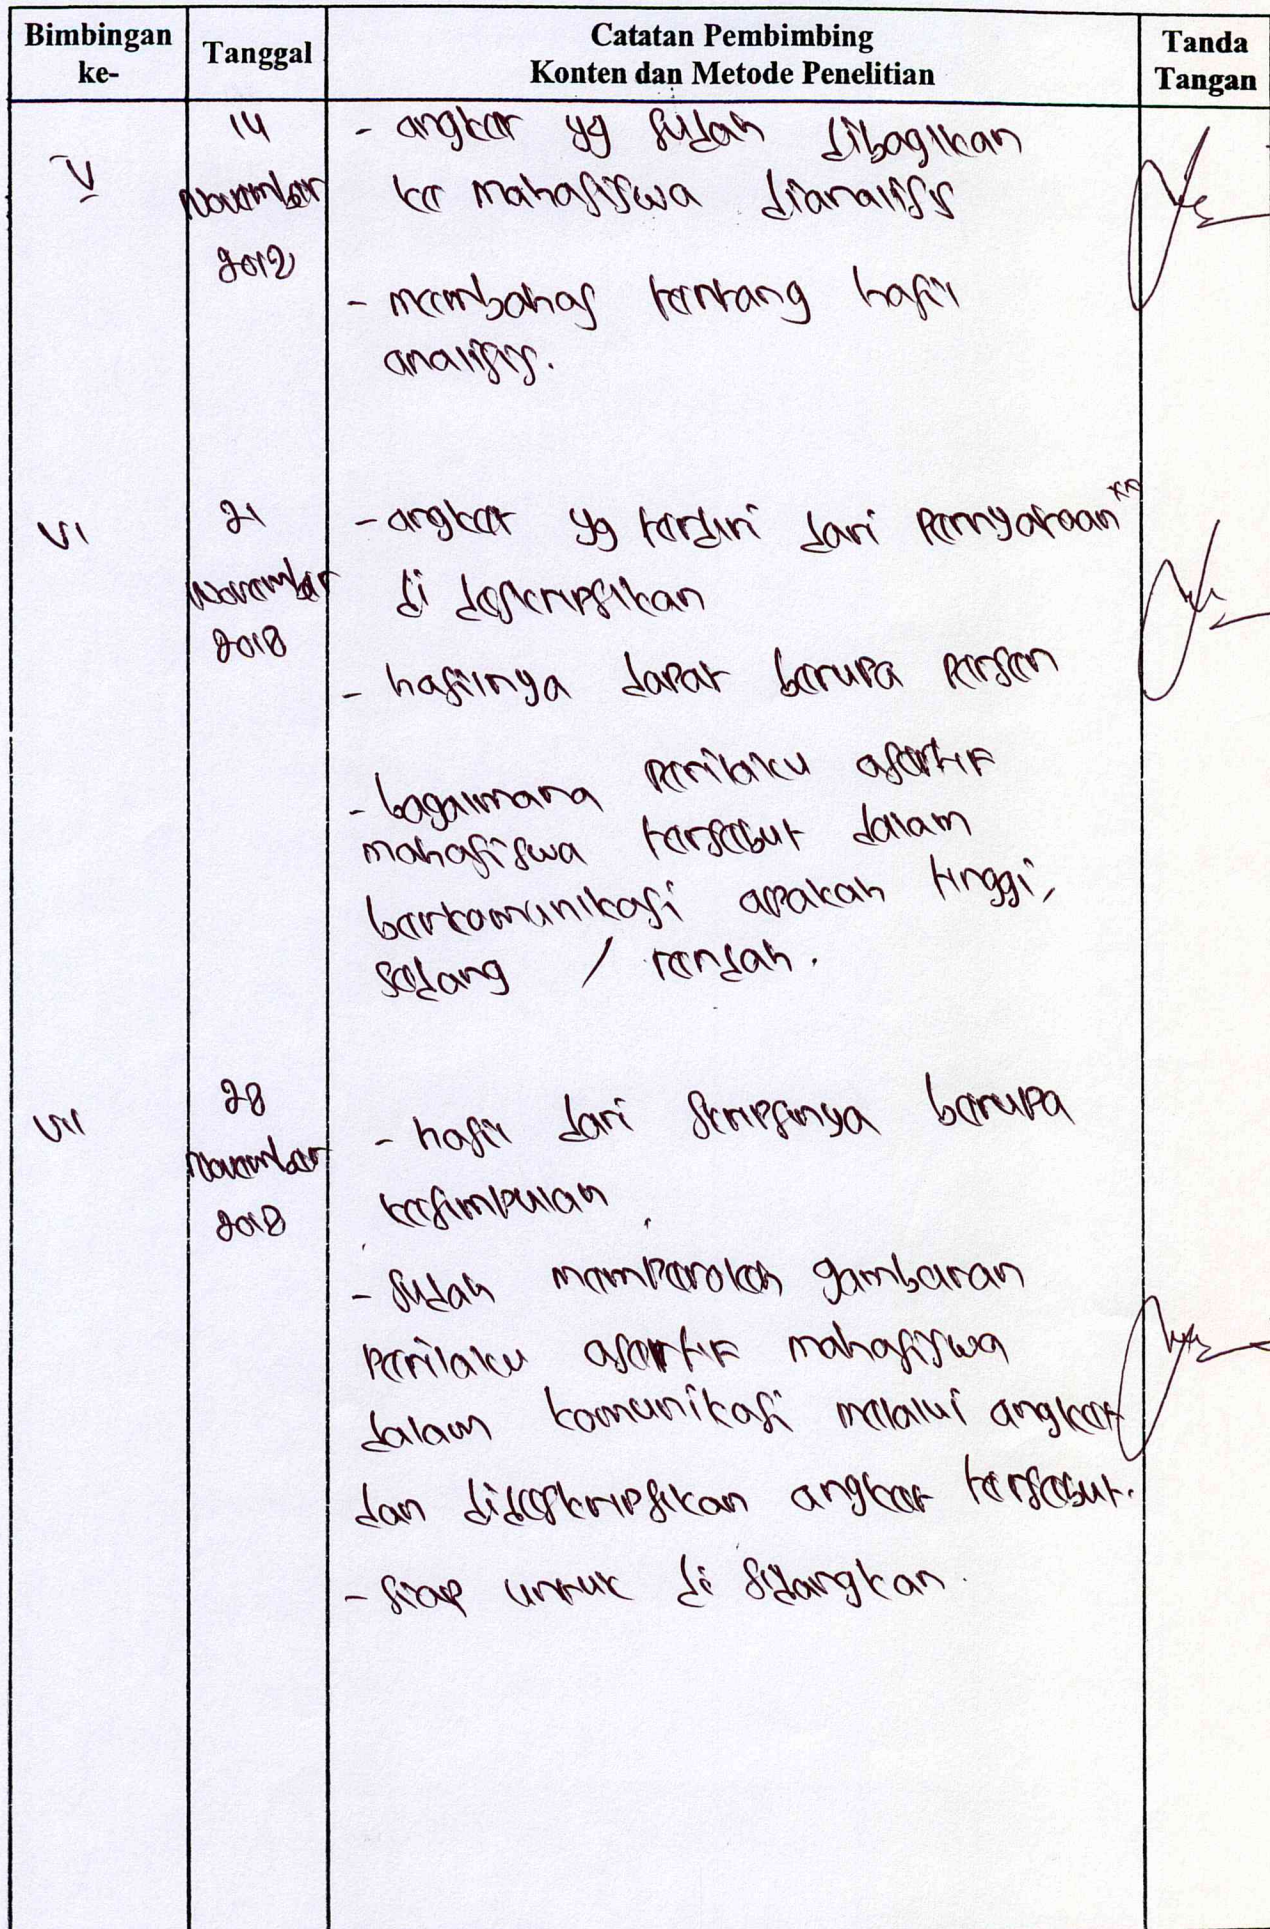 Bimbingan ke-
Tanggal
Catatan Pembimbing
Konten dan Metode Penelitian
Tanda Tangan
V
14
November
2018
- angket yg sudah dibagikan
ke mahasiswa dianalisis
- membahas tentang hasil
analisis.
VI
21
November
2018
- angket yg terdiri dari pernyataan
di deskripsikan
- hasilnya dapat berupa persen
- bagaimana perilaku asertif
mahasiswa tersebut dalam
berkomunikasi apakah tinggi,
sedang / rendah.
VII
28
November
2018
- hasil dari skripsinya berupa
kesimpulan
- sudah memperoleh gambaran
perilaku asertif mahasiswa
dalam komunikasi melalui angket
dan dideskripsikan angket tersebut.
- siap untuk di sidangkan.